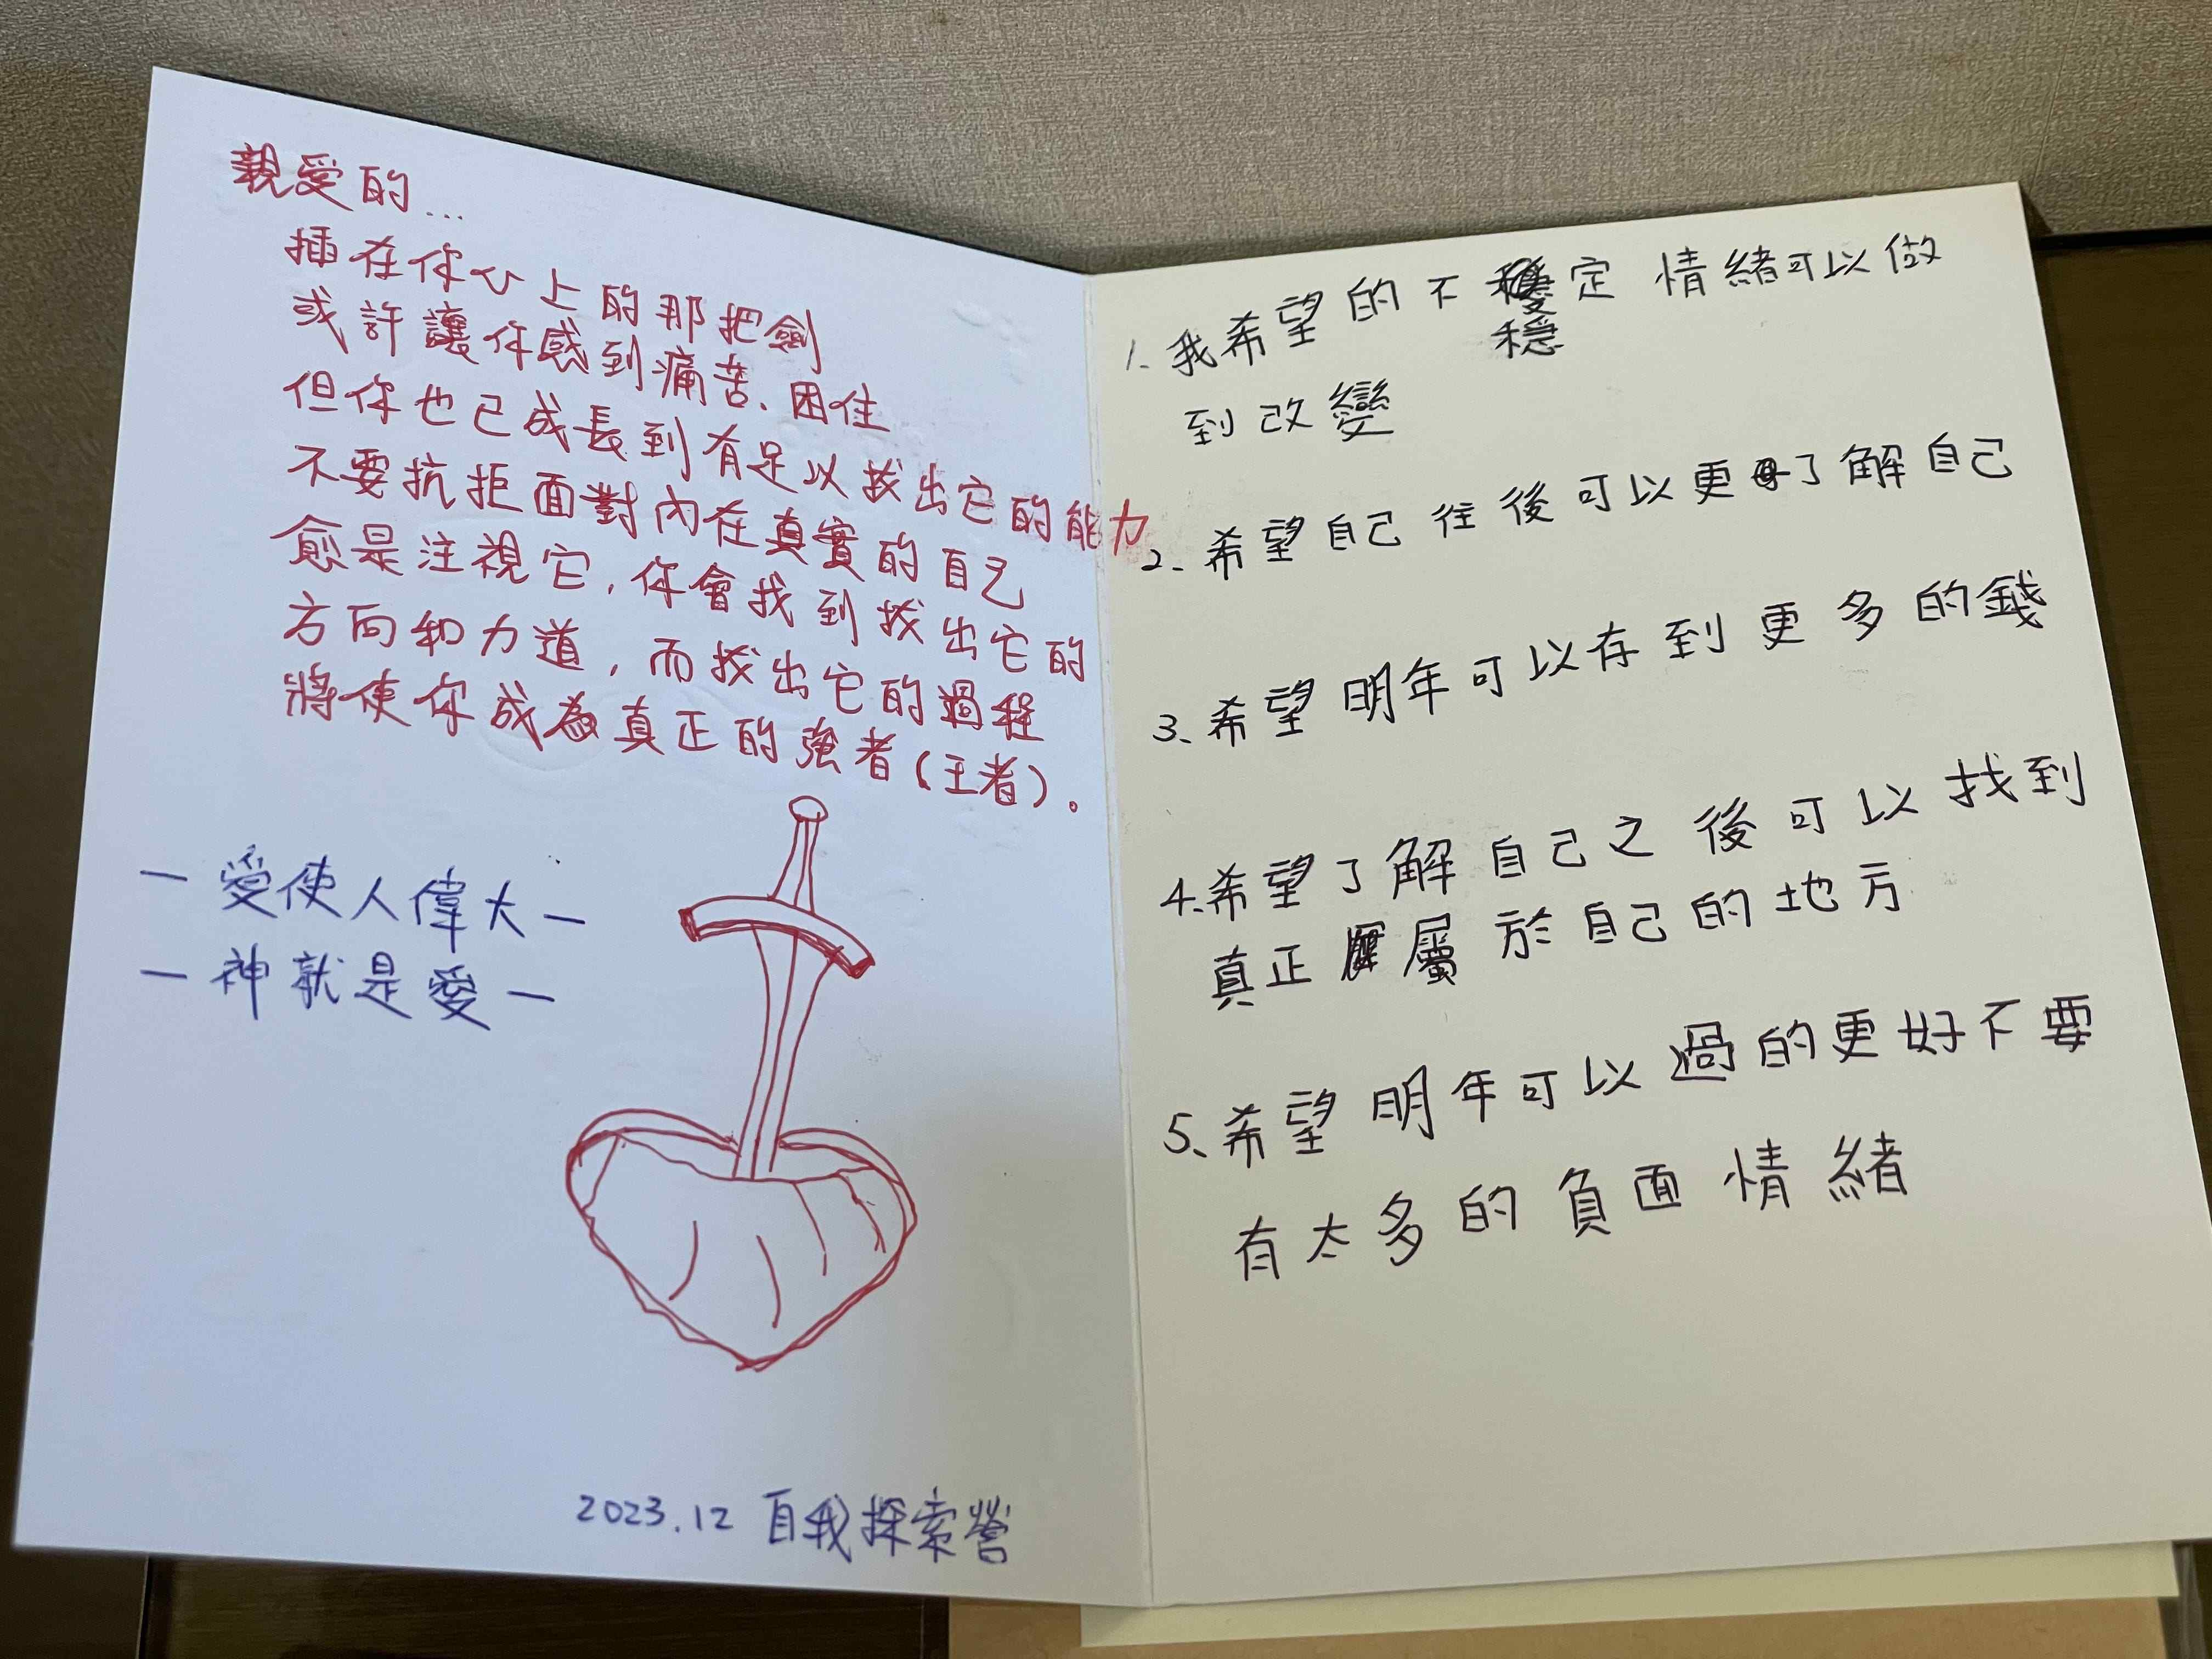 親愛的...
插在你心上的那把劍
或許讓你感到痛苦、困住
但你也已成長到有足以拔出它的能力
不要抗拒面對內在真實的自己
愈是注視它，你會找到拔出它的
方向和力道，而拔出它的過程
將使你成為真正的強者(王者)。
－愛使人偉大－
－神就是愛－
2023.12 自我探索營
1. 我希望的不穩定情緒可以做
到改變
2、希望自己往後可以更了解自己
3、希望明年可以存到更多的錢
4、希望了解自己之後可以找到
真正屬於自己的地方
5、希望明年可以過的更好不要
有太多的負面情緒